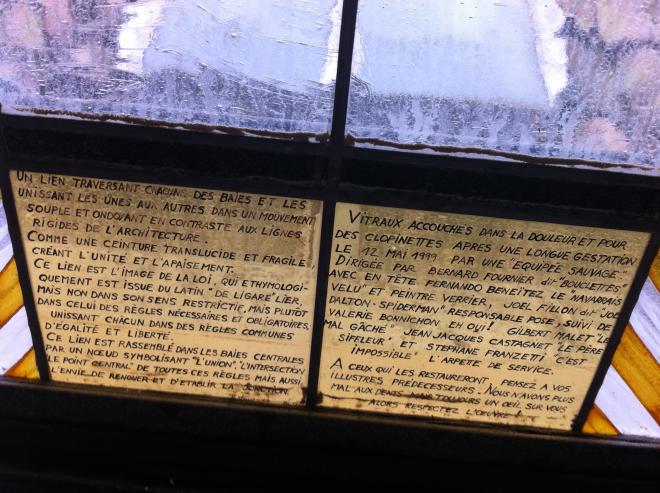 UN LIEN TRAVERSANT CHACUNE DES BAIES ET LES
UNISSANT LES UNES AUX AUTRES DANS UN MOUVEMENT
SOUPLE ET ONDOYANT EN CONTRASTE AUX LIGNES
RIGIDES DE L'ARCHITECTURE.
COMME UNE CEINTURE TRANSLUCIDE ET FRAGILE,
CRÉANT L'UNITÉ ET L'APAISEMENT.
CE LIEN EST L'IMAGE DE LA LOI, QUI ETHYMOLOGI-
QUEMENT EST ISSUE DU LATIN "DE LIGARE" LIER,
MAIS NON DANS SON SENS RESTRICTIF, MAIS PLUTÔT
DANS CELUI DES RÈGLES NÉCESSAIRES ET OBLIGATOIRES,
UNISSANT CHACUN DANS DES RÈGLES COMMUNES
D'ÉGALITÉ ET LIBERTÉ.
CE LIEN EST RASSEMBLÉ DANS LES BAIES CENTRALES
PAR UN NŒUD SYMBOLISANT "L'UNION", L'INTERSECTION
LE POINT CENTRAL DE TOUTES CES RÈGLES MAIS AUSSI
L'ENVIE DE RENOUER ET D'ETABLIR LA
VITRAUX ACCOUCHÉS DANS LA DOULEUR ET POUR
DES CLOPINETTES APRES UNE LONGUE GESTATION
LE 12 MAI 1999 PAR UNE "ÉQUIPÉE SAUVAGE"
DIRIGÉE PAR BERNARD FOURNIER dit "BOUCLETTES"
AVEC EN TÊTE FERNANDO BENEITEZ LE "NAVARRAIS
VELU" ET PEINTRE VERRIER, JOEL FILLON dit "JOE
DALTON - SPIDERMAN" RESPONSABLE POSE, SUIVI DE
VALERIE BONNICHON EH OUI! GILBERT MALET "LE
MAL GÂCHÉ" JEAN JACQUES CASTAGNET "LE PÈRE
SIFFLEUR" ET STEPHANE FRANZETTI "C'EST
IMPOSSIBLE" L'ARPETE DE SERVICE.
A CEUX QUI LES RESTAURERONT, PENSEZ A VOS
ILLUSTRES PREDECESSEURS. NOUS N'AVONS PLUS
MAL AUX DENTS MAIS TOUJOURS UN ŒIL SUR VOUS
ALORS RESPECTEZ L'ŒUVRE!